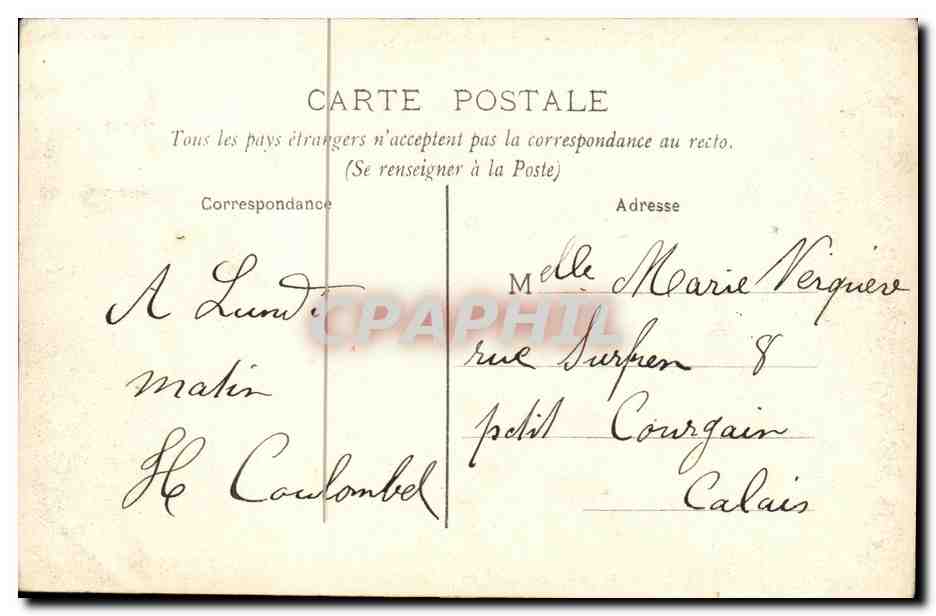 CARTE POSTALE
Tous les pays étrangers n'acceptent pas la correspondance au recto.
(Se renseigner à la Poste)
Correspondance
A Lundi
matin
H Coulombel
Adresse
Melle Marie Verquere
rue Surfren 8
petit Courgain
Calais
CPAPHIL